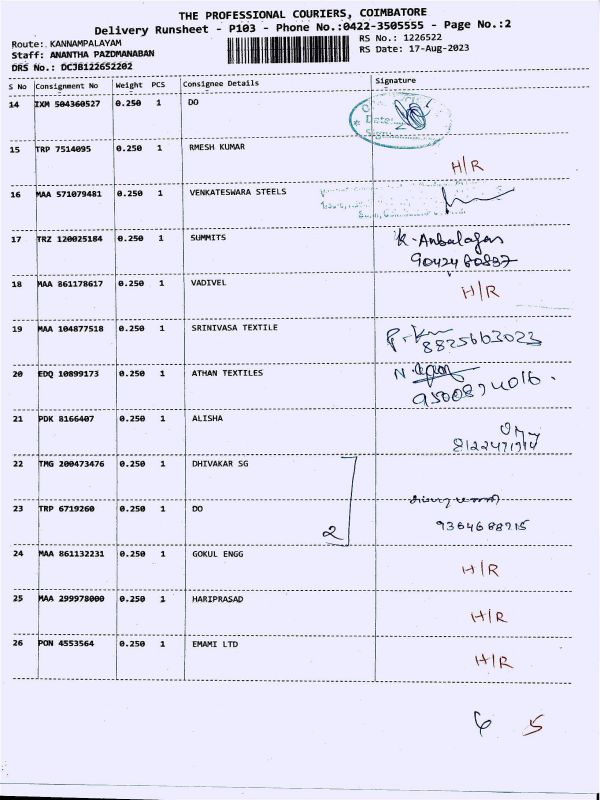 THE PROFESSIONAL COURIERS, COIMBATORE
Delivery Runsheet - P103 - Phone No.:0422-3505555 - Page No.:2
Route: KANNAMPALAYAM RS No.: 1226522
Staff: ANANTHA PAZDMANABAN RS Date: 17-Aug-2023
DRS No.: DCJB122652202
S No Consignment No Weight PCS Consignee Details Signature
14 IXM 504360527 0.250 1 DO
15 TRP 7514095 0.250 1 RMESH KUMAR H/R
16 MAA 571079481 0.250 1 VENKATESWARA STEELS
17 TRZ 120025184 0.250 1 SUMMITS K. Anbalagan
9042480837
18 MAA 861178617 0.250 1 VADIVEL H/R
19 MAA 104877518 0.250 1 SRINIVASA TEXTILE
8825663023
20 EDQ 10899173 0.250 1 ATHAN TEXTILES
9500874016.
21 PDK 8166407 0.250 1 ALISHA
22 TMG 200473476 0.250 1 DHIVAKAR SG
23 TRP 6719260 0.250 1 DO 2 9364688715
24 MAA 861132231 0.250 1 GOKUL ENGG H/R
25 MAA 299978000 0.250 1 HARIPRASAD H/R
26 PON 4553564 0.250 1 EMAMI LTD H/R
5